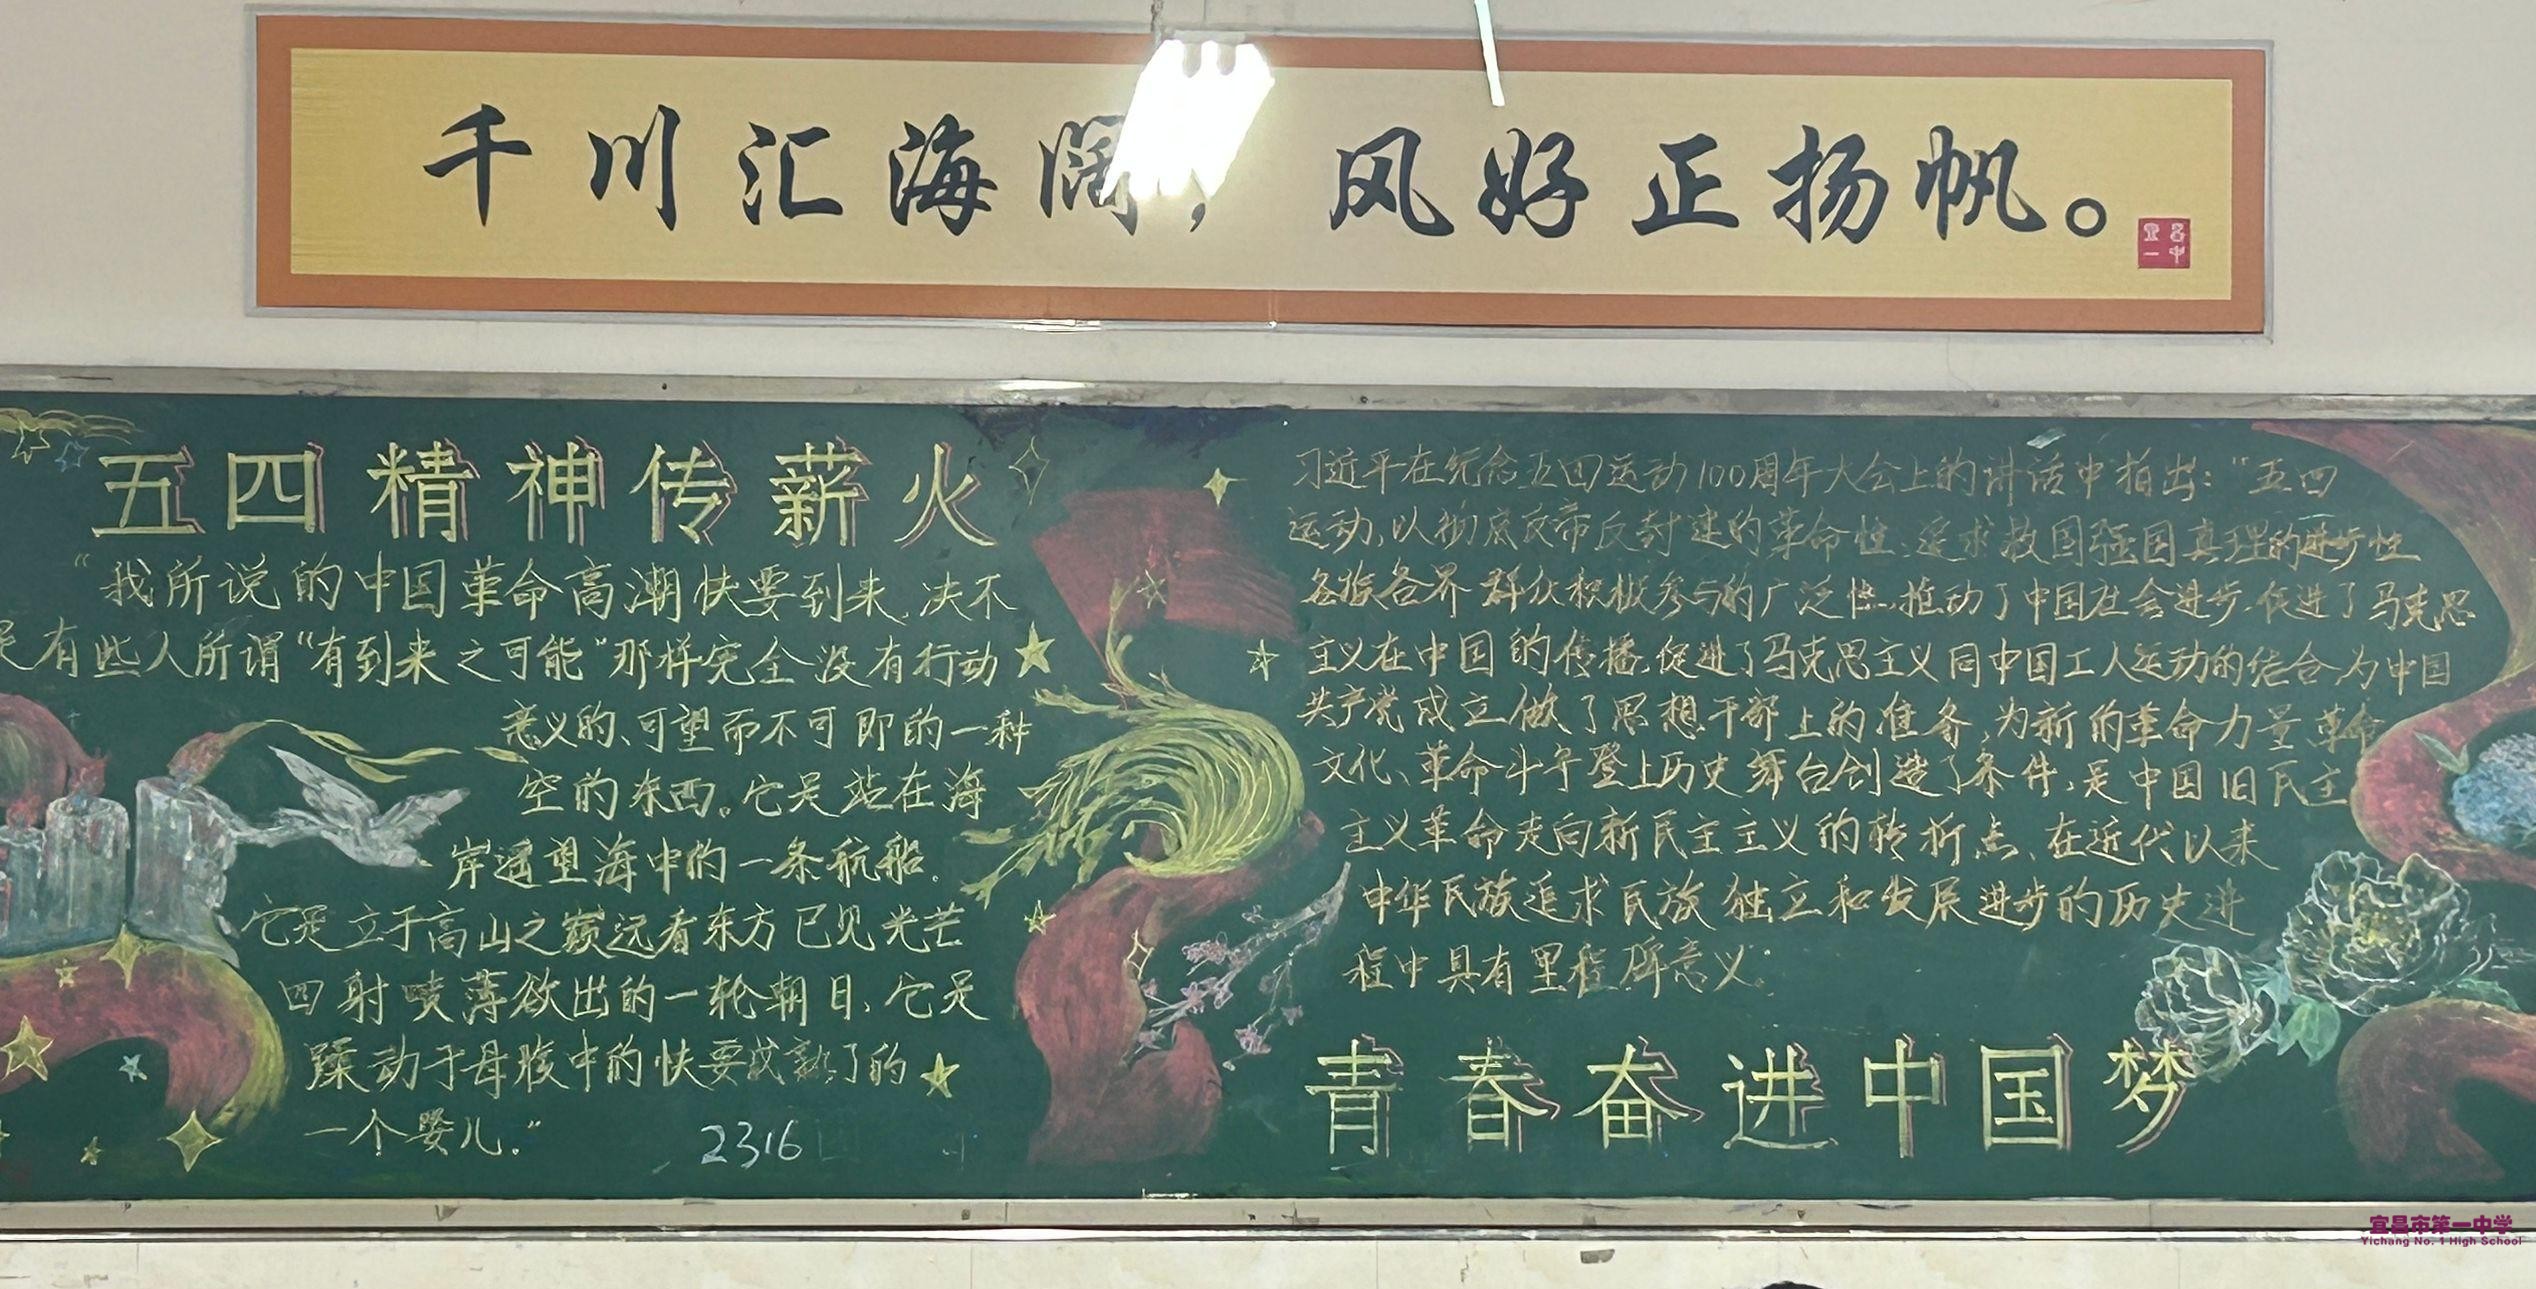 千川汇海阔，风好正扬帆。
宜昌一中
五四精神传薪火
“我所说的中国革命高潮快要到来、决不
是有些人所谓“有到来之可能”那样完全没有行动
意义的、可望而不可即的一种
空的东西。它是站在海
岸遥望海中的一条航船.
它是立于高山之巅远看东方已见光芒
四射喷薄欲出的一轮朝日、它是
躁动于母腹中的快要成熟了的
一个婴儿.”
2316
习近平在纪念五四运动100周年大会上的讲话中指出：“五四
运动,以彻底反帝反封建的革命性、追求救国强国真理的进步性
各族各界群众积极参与的广泛性,推动了中国社会进步.促进了马克思
主义在中国的传播,促进了马克思主义同中国工人运动的结合,为中国
共产党成立做了思想干部上的准备,为新的革命力量革命
文化、革命斗争登上历史舞台创造了条件,是中国旧民主
主义革命走向新民主主义的转折点、在近代以来
中华民族追求民族独立和发展进步的历史进
程中具有里程碑意义.”
青春奋进中国梦
宜昌市第一中学
Yichang No. 1 High School